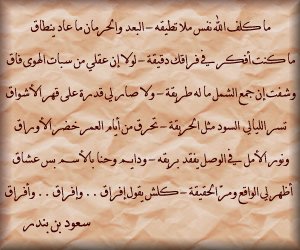 ما كلف الله نفس ملا تطيقه - البعد والحرمان ما عاد ينطاق
ما كنت أفكر في فراقك دقيقة - لولا إن عقلي من سبات الهوى فاق
وشفت إن جمع الشمل ماله طريقة - ولا صار لي قدرة على قهر الأشواق
تسر الليالي السود مثل الحريقة - تحرق من أيام العمر خضر الأوراق
ونور الأمل في الوصل يفقد بريقه - ودايم وحنا بالأسم بس عشاق
أظهر لي الواقع ومر الحقيقة - كلش يقول إفراق .. وإفراق .. وأفراق
سعود بن بندر